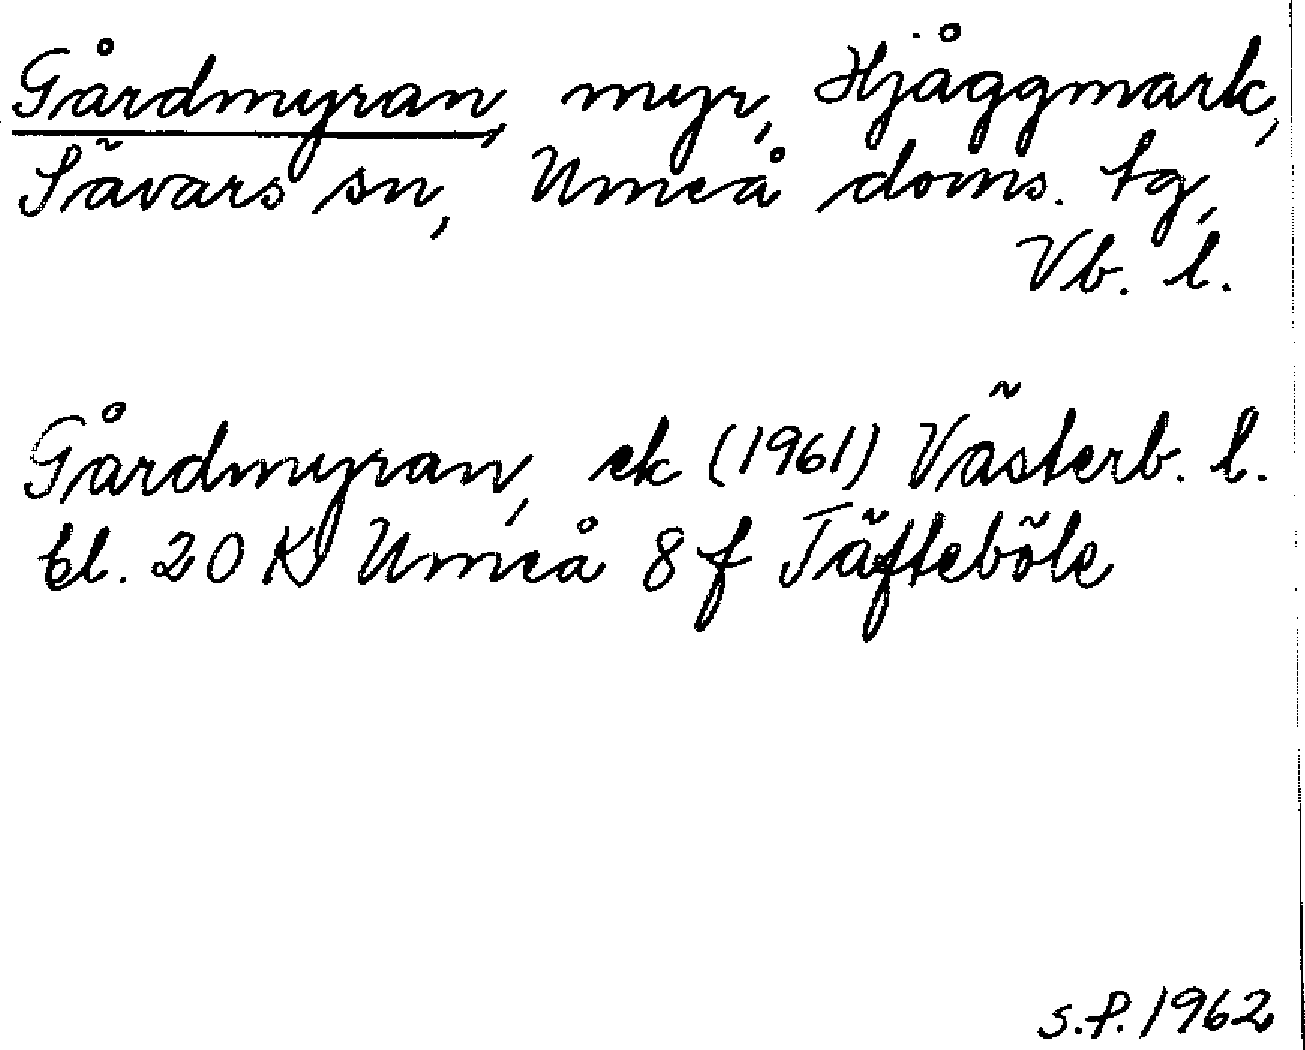 Gårdmyran, myr, Hjåggmark,
Sävars sn, Umeå doms. tg,
Vb. l.
Gårdmyran, ek (1961) Västerb. l.
bl. 20 K Umeå 8 f Täfteböle
S.P. 1962